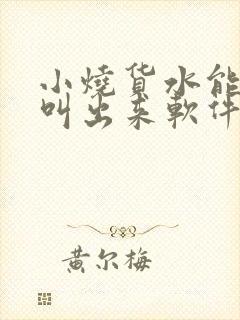 小燒货水能
叫出来軟件
黄尔梅